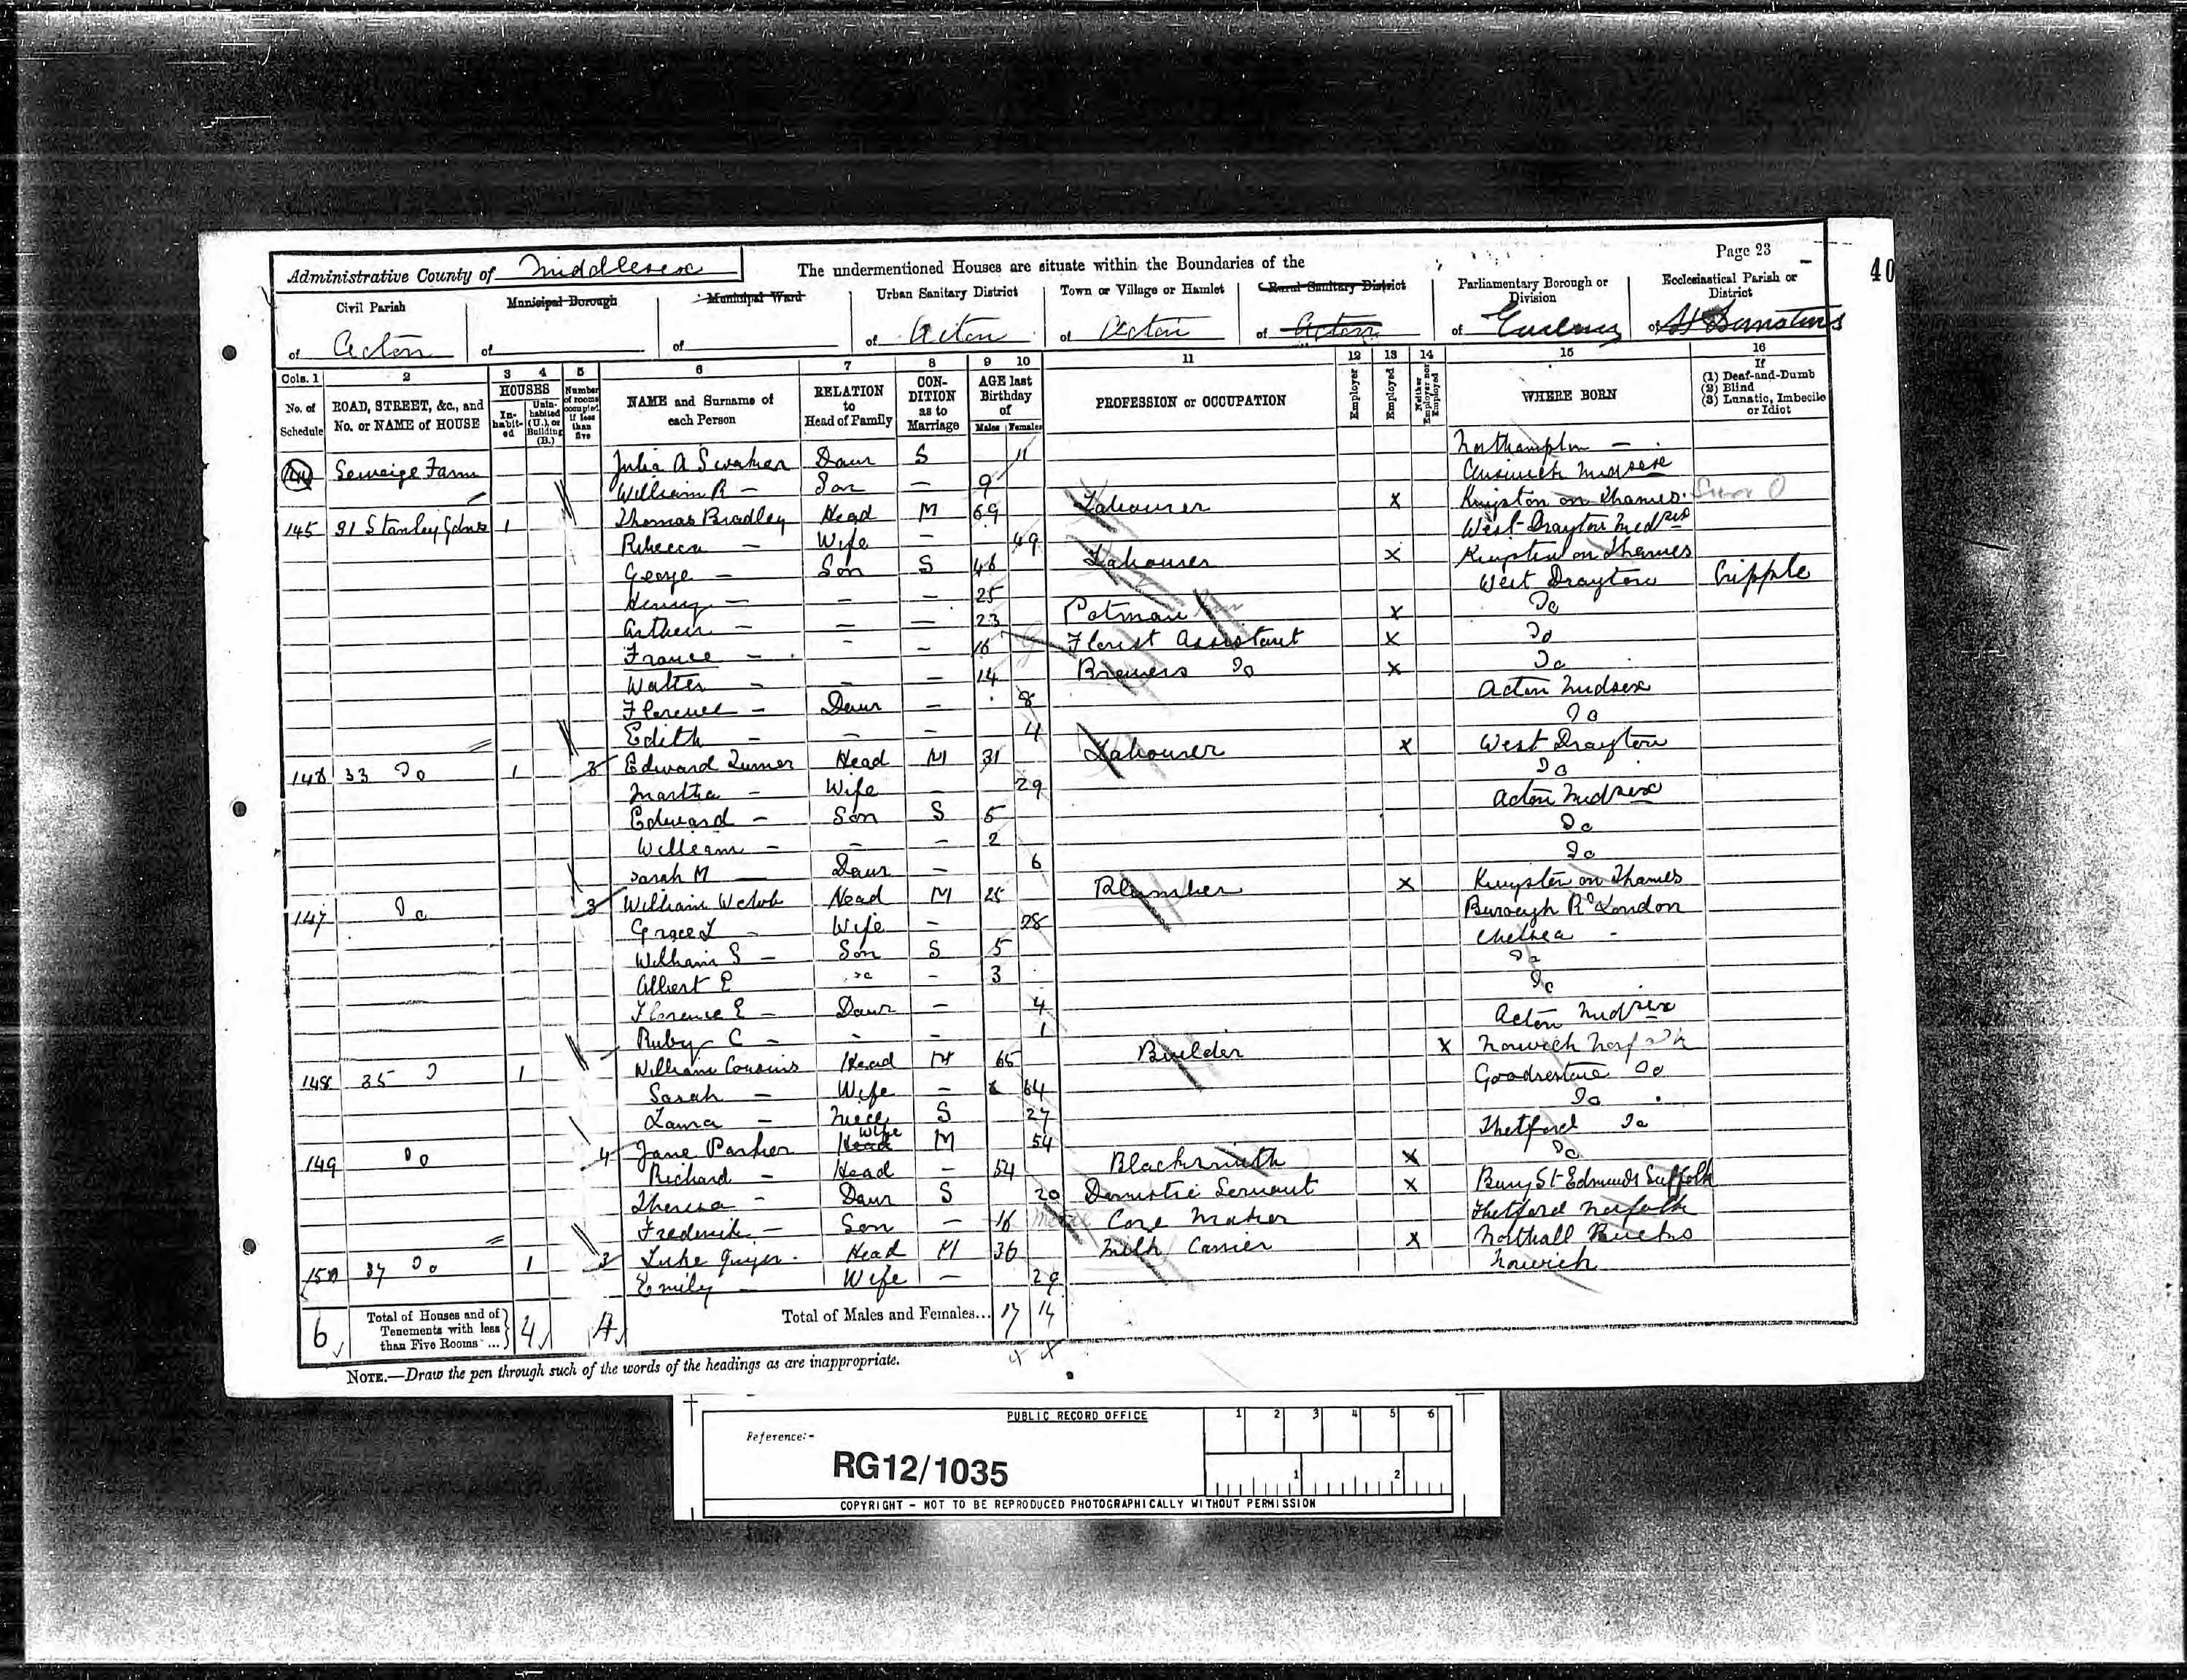 Page 23
40
Administrative County of Middlesex
The undermentioned Houses are situate within the Boundaries of the
Civil Parish
Municipal Borough
Municipal Ward
Urban Sanitary District
Town or Village or Hamlet
Rural Sanitary District
Parliamentary Borough or Division
Ecclesiastical Parish or District
of Acton
of
of
of Acton
of Acton
of Acton
of Ealing
of St Dunstans
Cols. 1 2 3 4 5 6 7 8 9 10 11 12 13 14 15 16
No. of Schedule
ROAD, STREET, &c., and No. or NAME of HOUSE
HOUSES
In-habit-ed
Unin-habited (U.), or Building (B.)
Number of rooms occupied if less than five
NAME and Surname of each Person
RELATION to Head of Family
CON-DITION as to Marriage
AGE last Birthday of
Males Females
PROFESSION or OCCUPATION
Employer
Employed
Neither Employer nor Employed
WHERE BORN
If
(1) Deaf-and-Dumb
(2) Blind
(3) Lunatic, Imbecile or Idiot
144 Seweige Farm Julia A Daur S 11 Northampton —
William R — Son — 9 Midsex
145 31 Stanley Gdns 1 Thomas Bradley Head M 69 Labourer X Kingston on Thames
Rebecca — Wife — 49 West Drayton Midsex
George — Son S 46 Labourer X Kingston on Thames
Henry — — — 25 West Drayton Cripple
Arthur — — — 23 Potman X Do
France — - — 16 Florist Assistant X Do
Walter — — — 14 Brewers Do X Do
Florence — Daur — 8 Acton Midsex
Edith — — — 4 Do
146 33 Do 1 3 Edward Turner Head M 31 Labourer X West Drayton
Martha — Wife — 29 Do
Edward — Son S 5 Acton Midsex
William — — — 2 Do
Sarah M — Daur — 6 Do
147 Do 3 William Webb Head M 25 Plumber X Kingston on Thames
Grace L — Wife — 28 Borough Rd London
William S — Son S 5 Chelsea -
Albert E Do - 3 Do
Florence E — Daur — 4 Do
Ruby C — - - 1 Acton Midsex
148 35 Do 1 William Cousins Head M 65 Builder X Norwich Norfolk
Sarah — Wife — 64 Do
Laura — Niece S 27 Do
149 Do 4 Jane Parker Head Wife M 54 Thetford Do
Richard — Head — 54 Blacksmith X Do
Theresa - Daur S 20 Domestic Servant X Bury St Edmunds Suffolk
Frederick — Son — 16 Core Maker Thetford Norfolk
150 37 Do 1 3 Luke Head M 36 Milk Carrier X Northall Bucks
Emily — Wife — 29 Norwich
6
Total of Houses and of Tenements with less than Five Rooms ...
4 4
Total of Males and Females... 17 14
NOTE.—Draw the pen through such of the words of the headings as are inappropriate.
PUBLIC RECORD OFFICE
1 2 3 4 5 6
Reference:-
RG12/1035
1 2
COPYRIGHT - NOT TO BE REPRODUCED PHOTOGRAPHICALLY WITHOUT PERMISSION